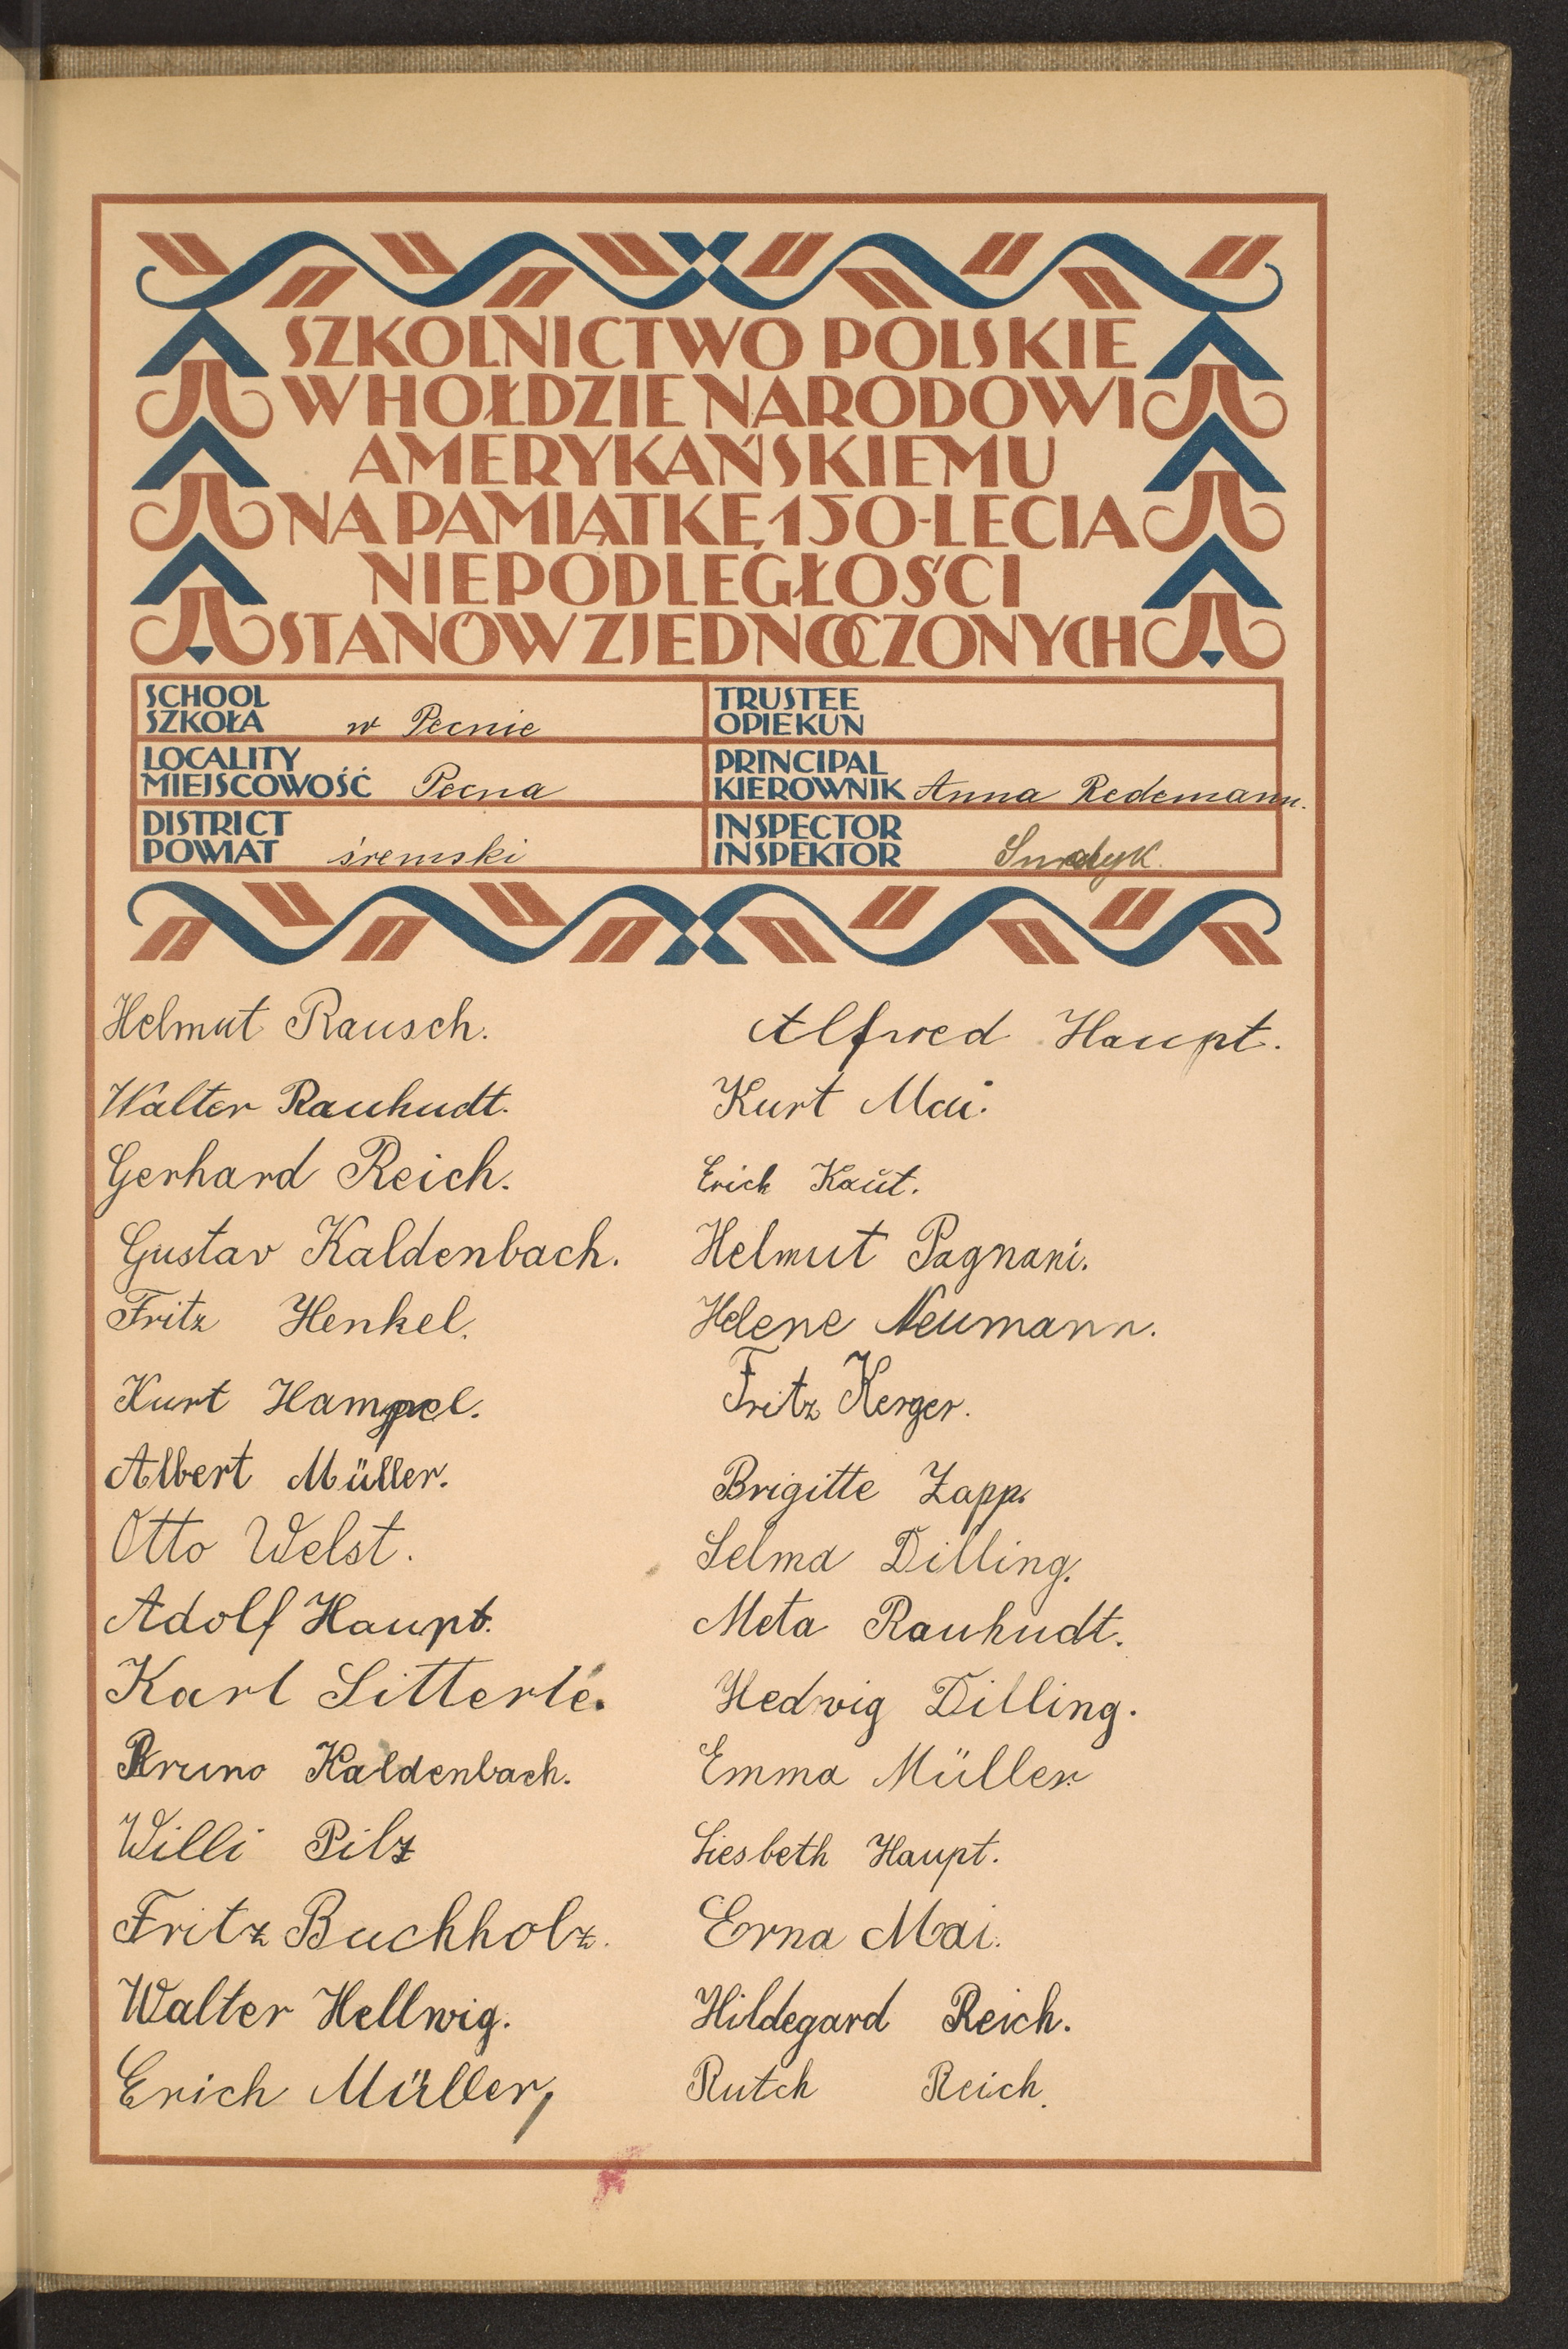 SZKOLNICTWO POLSKIE
W HOŁDZIE NARODOWI
AMERYKAŃSKIEMU
NA PAMIĄTKĘ 150-LECIA
NIEPODLEGŁOŚCI
STANÓW ZJEDNOCZONYCH
SCHOOL
SZKOŁA w Pecnie
TRUSTEE
OPIEKUN
LOCALITY
MIEJSCOWOŚĆ Pecna
PRINCIPAL
KIEROWNIK Anna Redemann.
DISTRICT
POWIAT śremski
INSPECTOR
INSPEKTOR
Helmut Rausch.
Walter Rauhudt.
Gerhard Reich.
Gustav Kaldenbach.
Fritz Henkel.
Kurt Hampel.
Albert Müller.
Otto Welst.
Adolf Haupt.
Karl Sitterle.
Bruno Kaldenbach.
Willi Pilz
Fritz Buchholz.
Walter Hellwig.
Erich Müller,
Alfred Haupt.
Kurt Mai.
Erich Kaŭt.
Helmut Pagnani.
Helene Neumann.
Fritz Kerger.
Brigitte Zapp.
Selma Dilling.
Meta Rauhudt.
Hedwig Dilling.
Emma Müller
Liesbeth Haupt.
Erna Mai.
Hildegard Reich.
Rutch Reich.